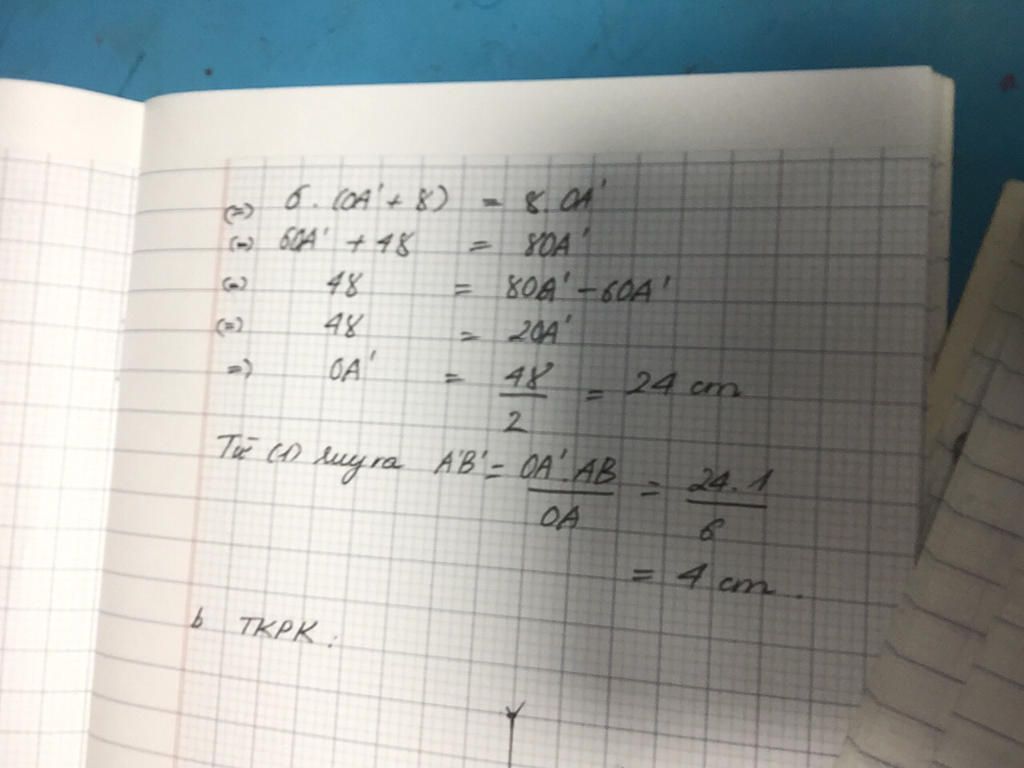 (=) 6. (OA' + 8) = 8. OA'
(=) 6OA' + 48 = 8OA'
(=) 48 = 8OA' - 6OA'
(=) 48 = 2OA'
=) OA' = 48/2 = 24 cm
Từ (1) suy ra A'B' = OA'.AB/OA = 24.1/6
= 4 cm.
b TKPK: